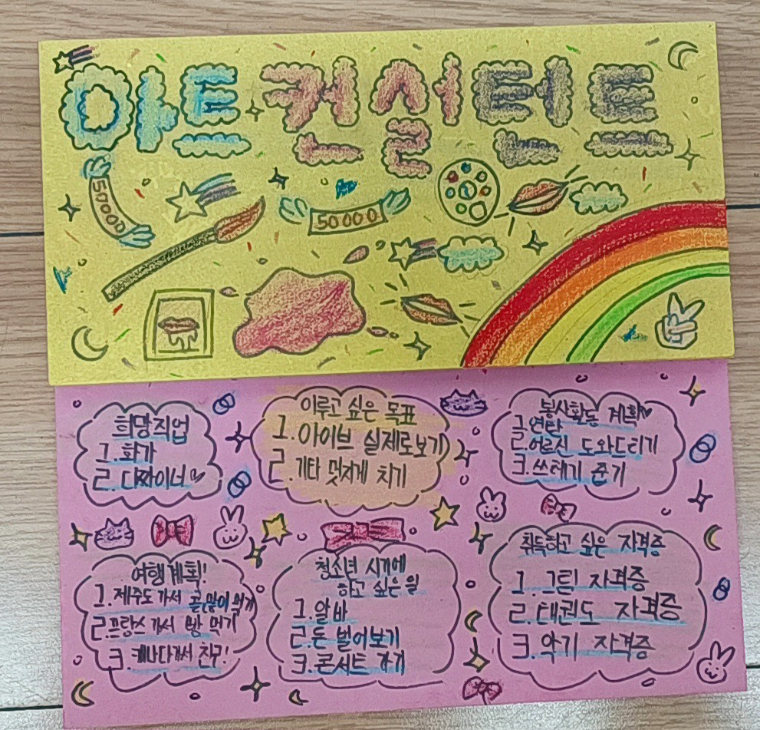 아트 컨설턴트
50000
50000
희망직업
1. 화가
2. 디자이너♡
이루고 싶은 목표
1. 아이브 실제로보기
2. 기타 멋지게 치기
봉사활동 계획♡
1. 연탄
2. 어르신 도와드리기
3. 쓰레기 줍기
여행계획!
1. 제주도 가서 귤 많이 먹기
2. 프랑스 가서 빵 먹기
3. 캐나다가서 친구!
청소년 시기에
하고 싶은 일
1. 알바
2. 돈 벌어보기
3. 콘서트 가기
취득하고 싶은 자격증
1. 그린 자격증
2. 태권도 자격증
3. 악기 자격증